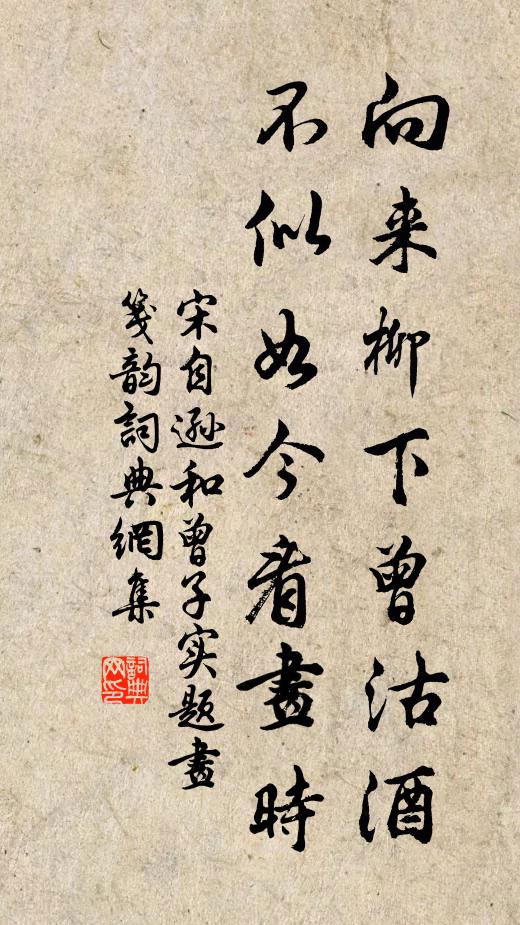 向来柳下曾沽酒
不似如今看畫時
宋自遜和曾子实题畫
箋韵詞典網集
詞典網印